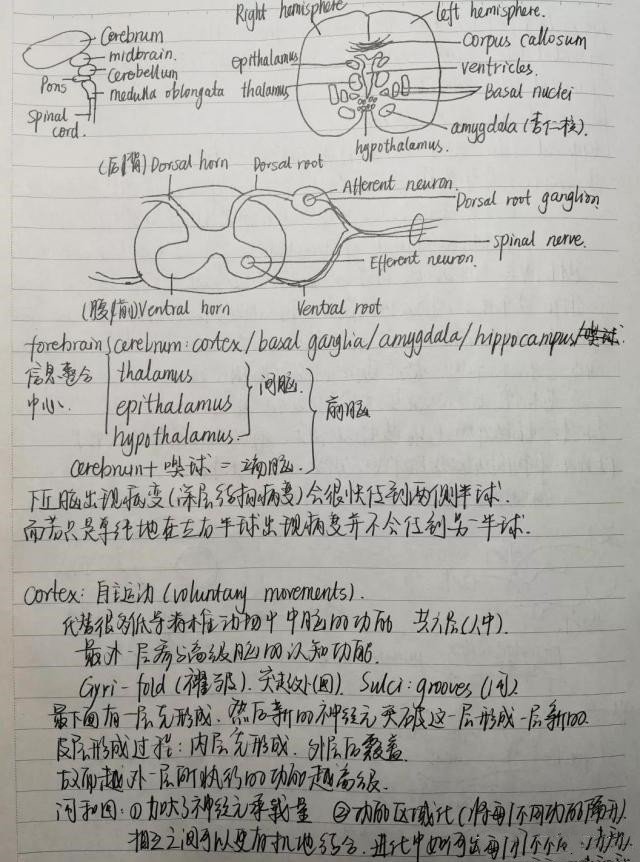 Cerebrum
midbrain.
Cerebellum
Pons
medulla oblongata
spinal cord.
Right hemisphere
left hemisphere.
Corpus callosum
epithalamus
ventricles.
thalamus
Basal nuclei
amygdala (杏仁核).
hypothalamus.
(后/背) Dorsal horn
Dorsal root
Afferent neuron.
Dorsal root ganglion
spinal nerve.
Efferent neuron.
(腹/前) Ventral horn
Ventral root
forebrain cerebrum: cortex / basal ganglia / amygdala / hippocampus / 嗅球
信息整合中心. thalamus
epithalamus 间脑.
hypothalamus. 前脑
cerebrum + 嗅球 = 端脑.
下丘脑出现病变 (深层结构病变) 会很快传到两侧半球.
而若只是单纯地在左右半球出现病变并不会传到另一半球.
Cortex: 自主运动 (voluntary movements).
代替很多低等脊椎动物中中脑的功能 共六层 (人中).
最外一层参与高级脑的认知功能.
Gyri - fold (褶皱). 突起处 (回). Sulci: grooves (沟)
最下面有一层先形成. 然后新的神经元突破这一层形成一层新的.
皮层形成过程: 内层先形成. 外层后覆盖.
故而越外一层所执行的功能越高级.
沟和回: ① 加大了神经元承载量 ② 功能区域化 (将每个不同功能隔开.
相互之间可以更有机地结合.